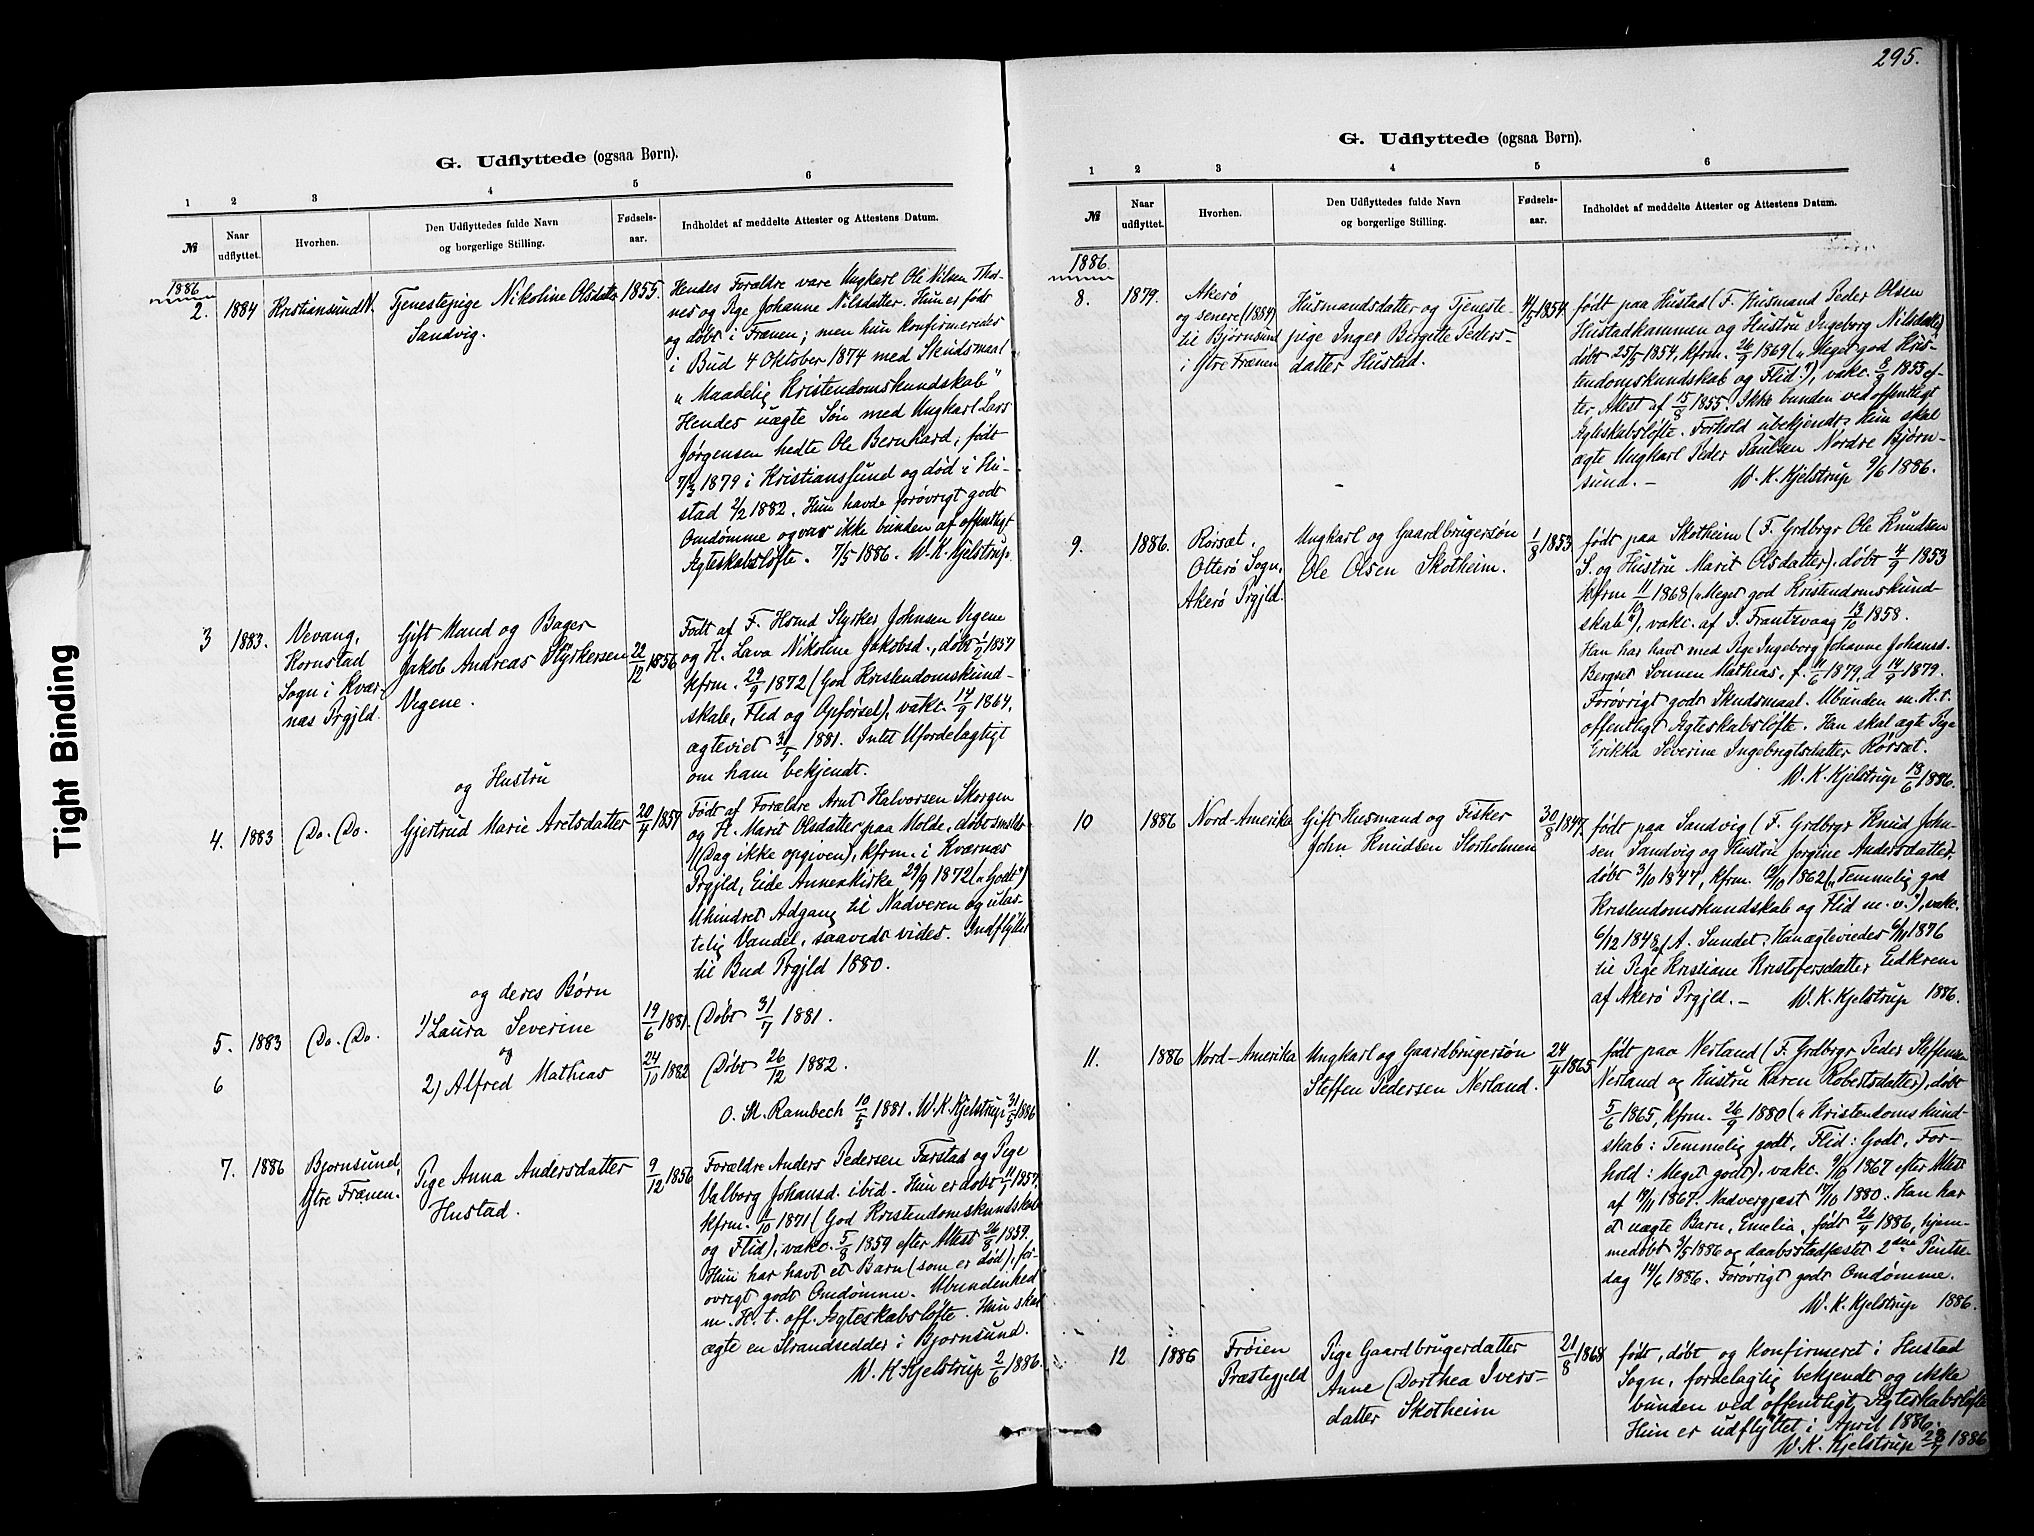 295.
G. Udflyttede (ogsaa Børn).
1 2 3 4 5 6
№ Naar udflyttet. Hvorhen. Den Udflyttedes fulde Navn og borgerlige Stilling. Fødsels-aar. Indholdet af meddelte Attester og Attestens Datum.
1886
2. 1884 Kristianssund N. Tjenestepige Nikoline Olsdatter 1855.
Sandvig.
Hendes Forældre vare Ungkarl Ole Nilsen Thor-
nes og Pige Johanne Nilsdatter. Hun er født
og døbt i Frænen; men hun konfirmeredes
i Bud 4 Oktober 1874 med Skudsmaal
"Maadelig Kristendomskundskab"
Hendes uægte Søn med Ungkarl Lars
Jørgensen hedte Ole Bernhard, født
7/3 1879 i Kristianssund og død i Hu-
stad 2/2 1882. Hun havde forøvrigt godt
Omdømme og var ikke bunden af offentligt
Ægteskabsløfte. 7/5 1886. W. K. Kjelstrup.
3 1883. Vevang,
Kornstad
Sogn i Kvær-
næs Prgjld.
Gift Mand og Bager
Jakob Andreas Styrkersen
Vegene.
22/12 1856
Født af F. Hsmd Styrker Johnsen Vegene
og H. Lava Nikoline Jakobsd., døbt 1/2 1857
kfrm. 29/9 1872 (God Kristendomskund-
skab, Flid og Opførsel), vakc. 14/9 1864,
ægteviet 31/5 1881. Intet Ufordelagtigt
om ham bekjendt.
og Hustru
4. 1883 Do. Do. Gjertrud Marie Arntsdatter 20/4 1857
Født af Forældre Arnt Halvorsen Skorgen
og H. Marit Olsdatter paa Molde, døbt smstds
(Dag ikke opgiven), kfrm. i Kværnæs
Prgjld, Eide Annexkirke 29/9 1872 ("Godt")
Uhindret Adgang til Nadveren og ulas-
telig Vandel, saavidt vides. Indflyttet
til Bud Prgjld 1880.
og deres Børn
5. 1883 Do. Do. 1) Laura Severine 19/6 1881 Døbt 31/7 1881.
og
6 2) Alfred Mathias 24/10 1882 Døbt 26/12 1882.
O. M. Rambech 10/5 1881. W. K. Kjelstrup 31/5 1886
7. 1886 Bjornsund,
Ytre Frænen.
Pige Anna Andersdatter
Hustad.
9/12 1856
Forældre Anders Pedersen Farstad og Pige
Valborg Johansd. ibid. Hun er døbt 11/1 1857.
kfrm. 1/10 1871 (God Kristendomskundskab
og Flid), vakc. 5/8 1859 efter Attest 26/8 1859.
Hun har havt et Barn (som er død), for-
øvrigt godt Omdømme. Ubundenhed
m. H. t. off. Ægteskabsløfte. Hun skal
ægte en Strandsedder i Bjornsund.
W. K. Kjelstrup 2/6 1886.
G. Udflyttede (ogsaa Børn).
1 2 3 4 5 6
№ Naar udflyttet. Hvorhen. Den Udflyttedes fulde Navn og borgerlige Stilling. Fødsels-aar. Indholdet af meddelte Attester og Attestens Datum.
1886.
8. 1879. Akerø
og senere (1884)
til Bjørnsund
i Ytre Frænen
Husmandsdatter og Tjeneste-
pige Inger Bergitte Peders-
datter Hustad.
4/5 1854
født paa Hustad (F. Husmand Peder Olsen
Hustadkammen og Hustru Ingeborg Nilsdatter),
døbt 25/5 1854, kfrm. 26/9 1869 ("Meget god Kris-
tendomskundskab og Flid"), vakc. 8/9 1855 ef-
ter Attest af 15/8 1855. Ikke bunden ved offentligt
Ægteskabsløfte. Forhold ubekjendt. Hun skal
ægte Ungkarl Peder Paulsen Nordre Bjørn-
sund. – W. K. Kjelstrup 9/6 1886.
9. 1886. Rørsæt,
Otterø Sogn,
Akerø Prgjld.
Ungkarl og Gaardbrugersøn
Ole Olsen Skotheim.
1/8 1853
født paa Skotheim (F. Grdbrgr Ole Knudsen
S. og Hustru Marit Olsdatter), døbt 4/9 1853
kfrm 11/10 1868 ("Meget god Kristendomskund-
skab"), vakc. af S. Frantzvaag 13/10 1858.
Han har havt med Pige Ingeborg Johanne Johansd.
Bergset Sønnen Mathias, f. 11/6 1879, d 14/9 1879.
Forøvrigt godt Skudsmaal. Ubunden m. H. t.
offentligt Ægteskabsløfte. Han skal ægte Pige
Erikka Severine Ingebrigtsdatter Rørsæt.
W. K. Kjelstrup 18/6 1886.
10 1886 Nord-Amerika Gift Husmand og Fisker
John Knudsen Storholmen
30/8 1847.
født paa Sandvig (F. Grdbrgr Knud John-
sen Sandvig og Hustru Jorgine Andersdatter),
døbt 3/10 1847, kfrm. 12/10 1862 ("Temmelig god
Kristendomskundskab og Flid m. v."), vakc.
6/12 1848 af A. Sundet. Han ægteviedes 6/11 1876
til Pige Kristiane Kristofersdatter Eidkrem
af Akerø Prgjld. – W. K. Kjelstrup 1886.
11. 1886 Nord-Amerika Ungkarl og Gaardbrugersøn
Steffen Pedersen Nerland.
24/4 1865
født paa Nerland (F. Grdbrgr Peder Steffensen
Nerland og Hustru Karen Robertsdatter), døbt
5/6 1865, kfrm. 26/9 1880 ("Kristendomskund-
skab: Temmelig godt, Flid: Godt, For-
hold: Meget godt), vakc. 9/12 1867 efter Attest
af 17/11 1867. Nadvergjæst 17/10 1880. Han har
et uægte Barn, Emelia, født 26/4 1886, hjem-
medøbt 3/5 1886 og daabsstadfæstet 2den Pintse-
dag 14/6 1886. Forøvrigt godt Omdømme.
W. K. Kjelstrup 1886.
12 1886 Frøien
Præstegjeld
Pige Gaardbrugerdatter
Anne Dorthea Ivers-
datter Skotheim
21/8 1868
født, døbt og konfirmeret i Hustad
Sogn, fordelagtig bekjendt og ikke
bunden ved offentligt Ægteskabsløfte
Hun er udflyttet i April 1886.
W. K. Kjelstrup 28/7 1886
Tight Binding